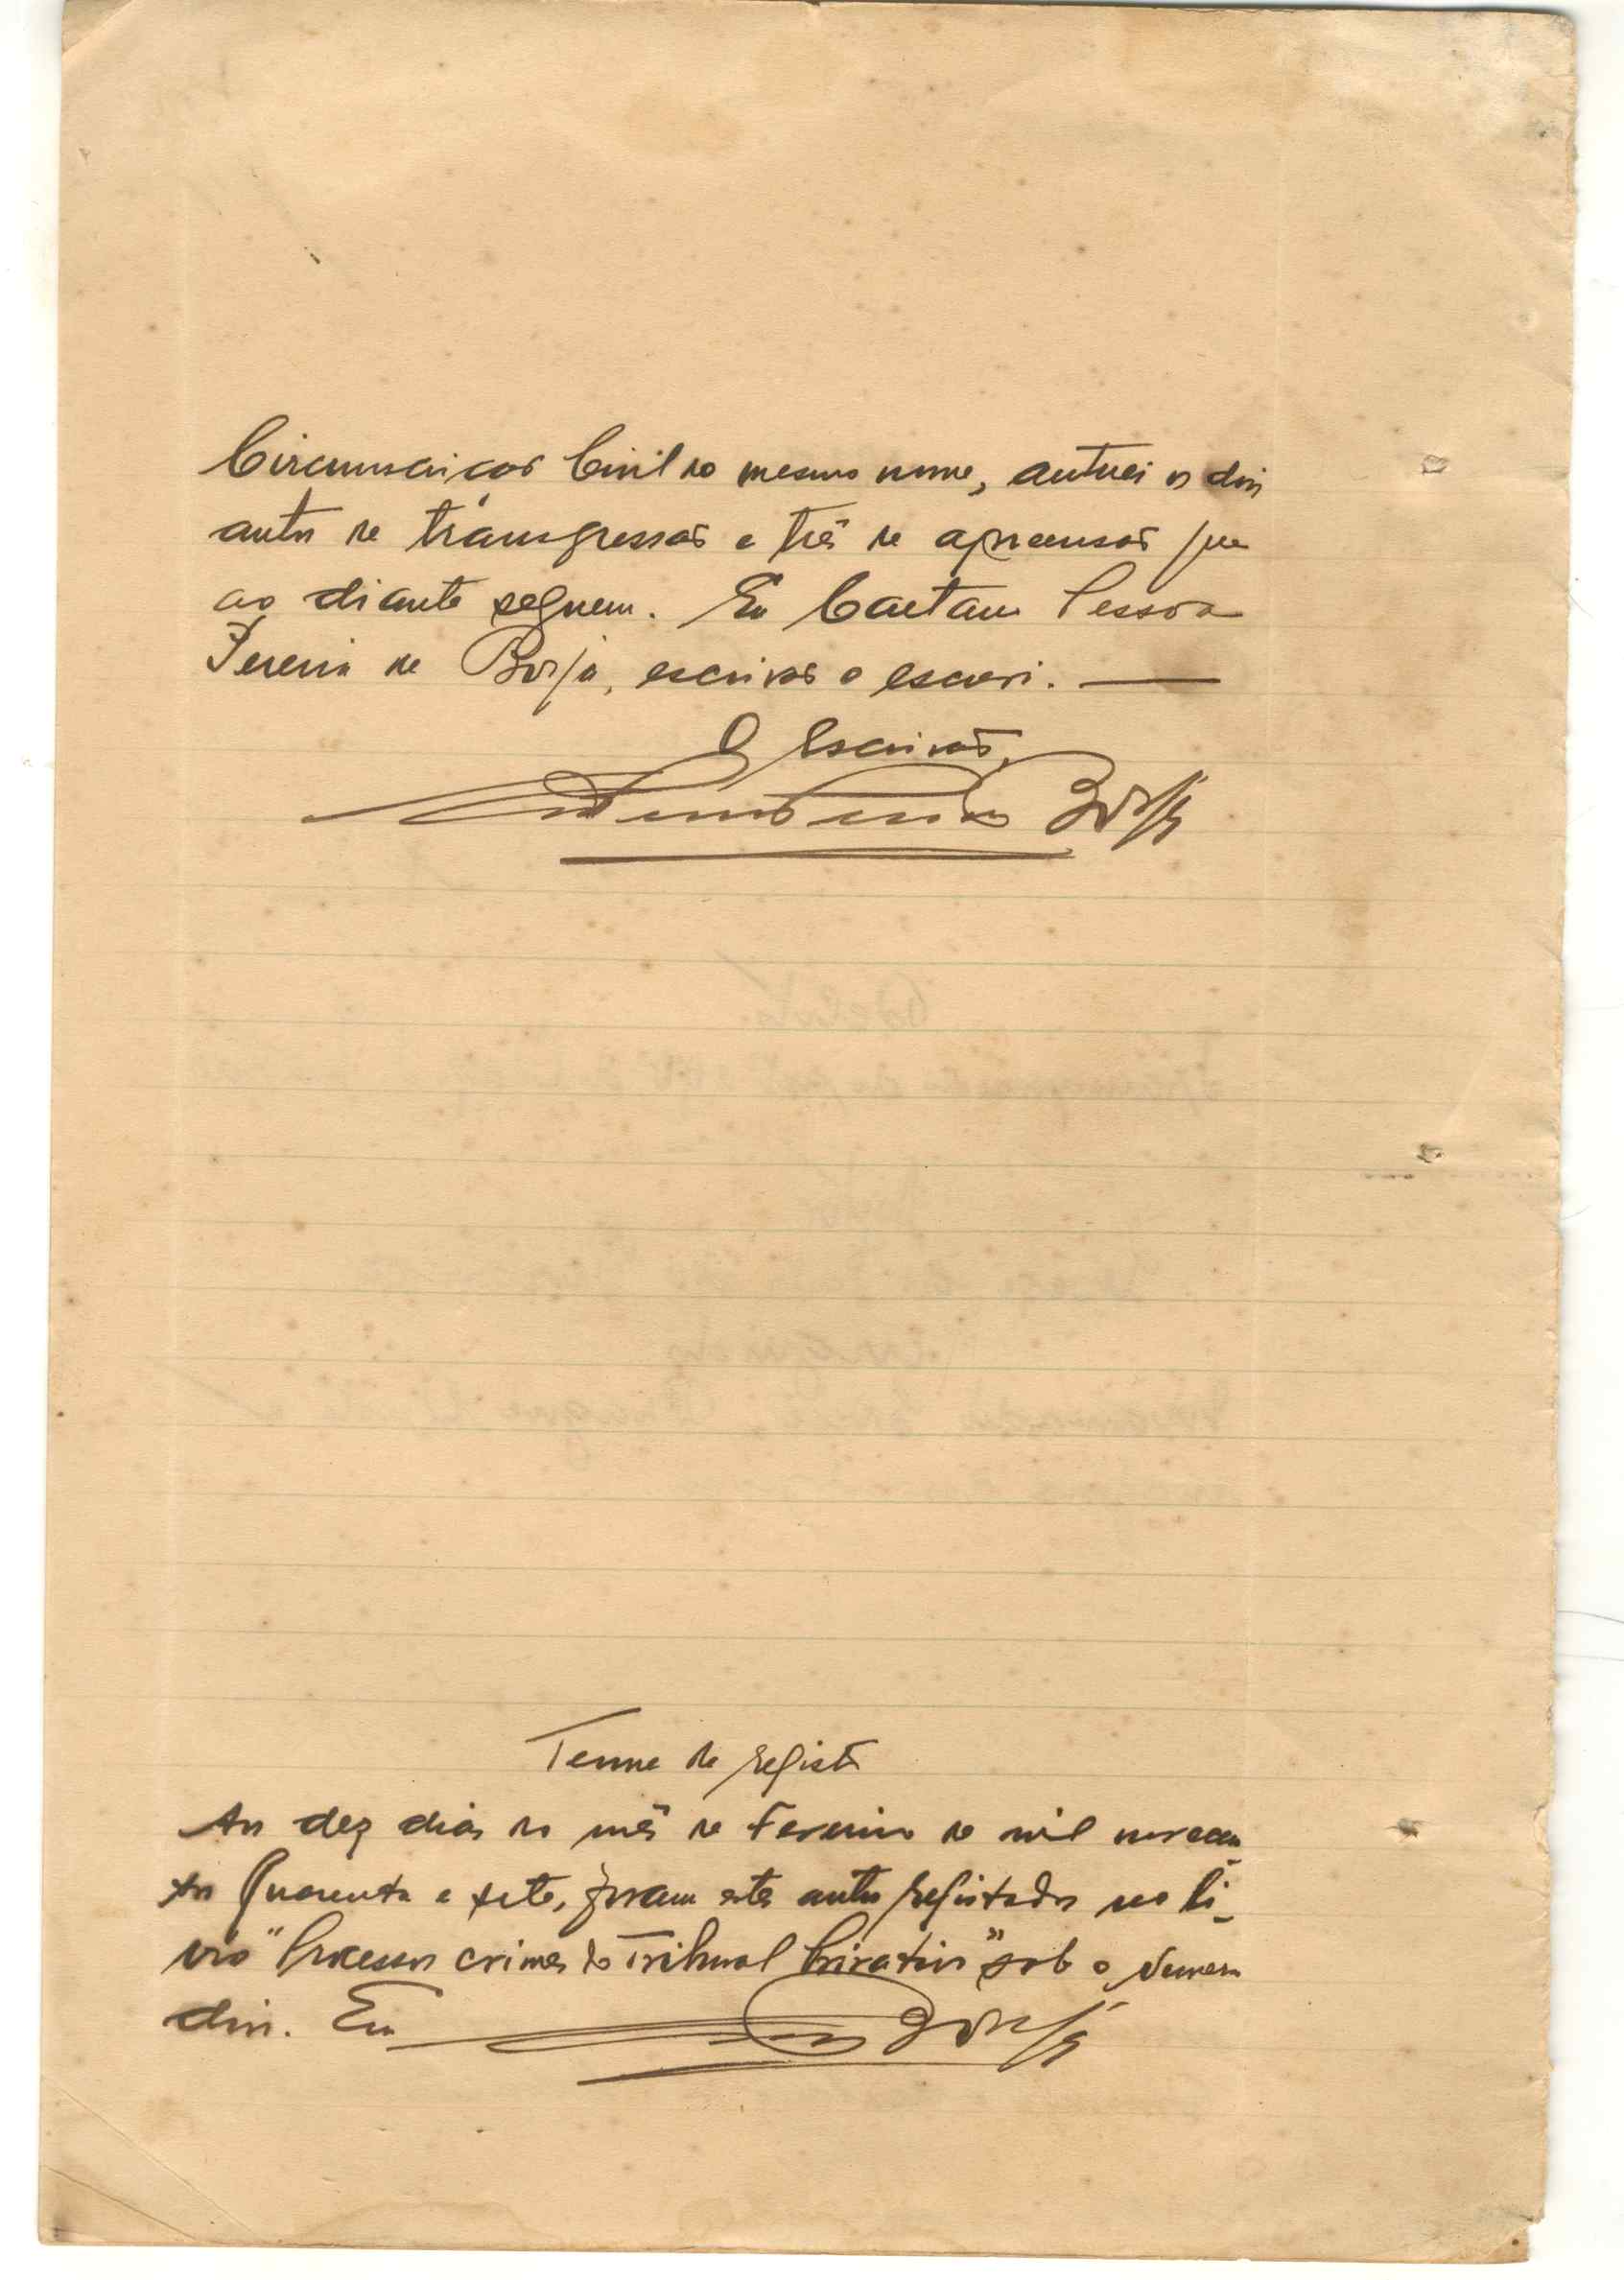 Circunscrição Civil do mesmo nome, autuei os dois
autos de transgressão e três de apreensão que
ao diante seguem. Eu Caetano Pessoa
Pereira de Borja, escrivão o escrevi.
O escrivão,
Borja
Termo de registo
Aos dez dias do mês de Fevereiro de mil novecen-
tos quarenta e sete, foram estes autos registados no li-
vro "Processos crimes do Tribunal Privativo" sob o numero
dois. Eu Borja